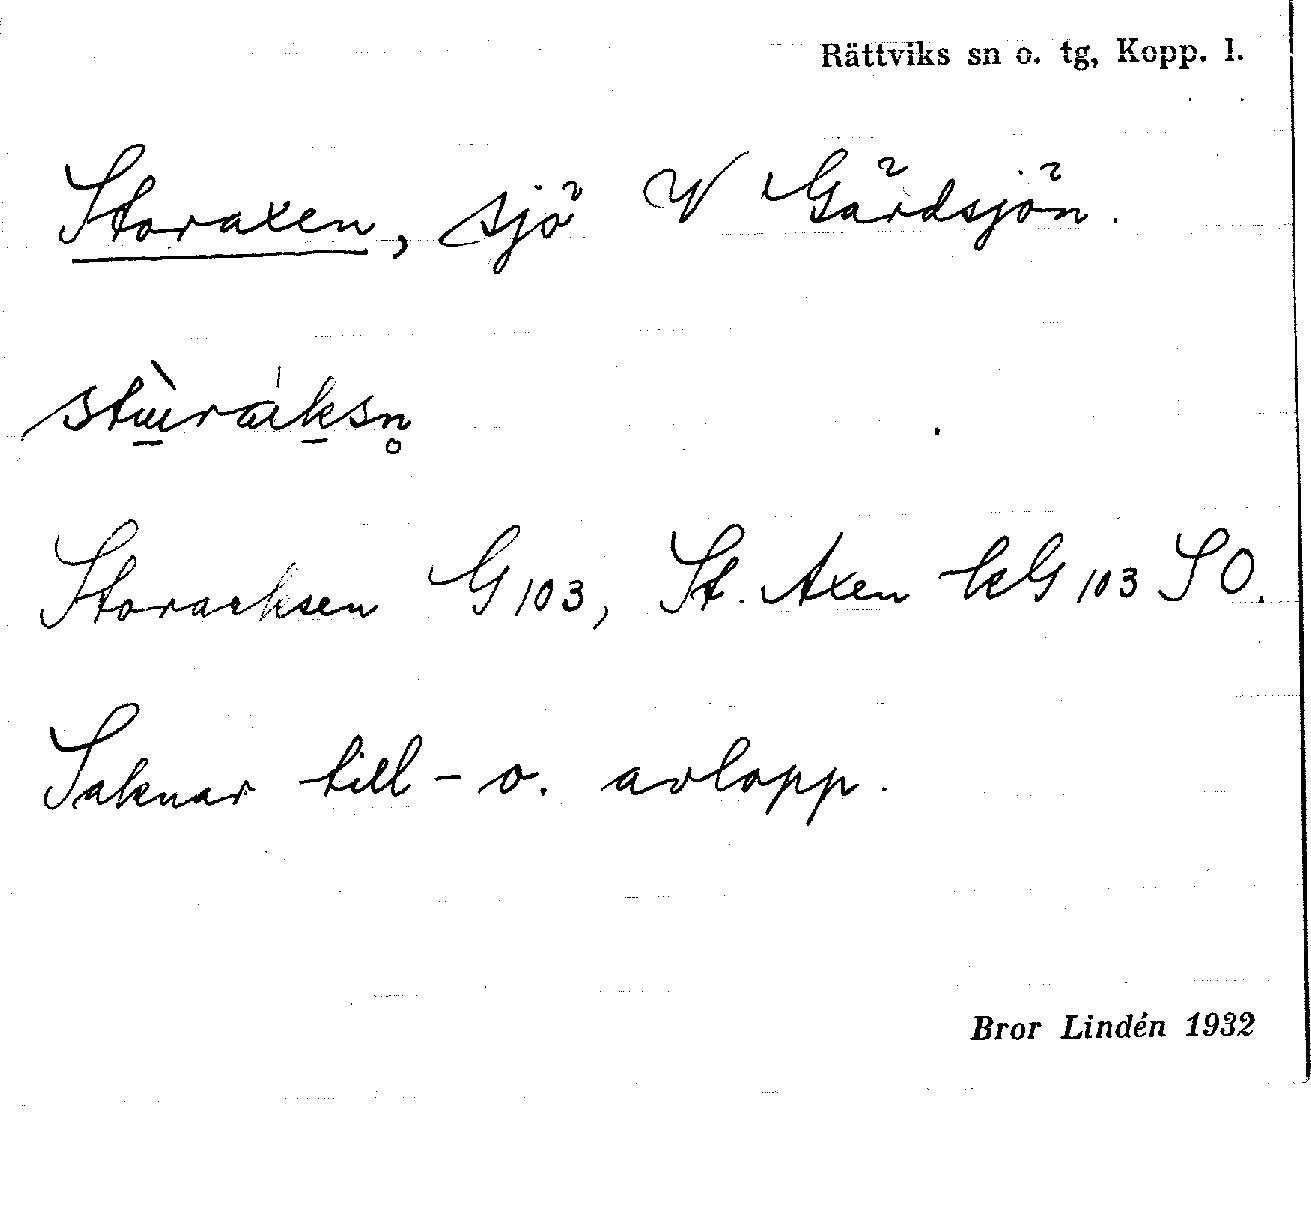 Rättviks sn o. tg, Kopp. l.
Storaxen, sjö V Gärdsjön.
Storacksen G 103, St. Axen kG 103 SO.
Saknar till- o. avlopp.
Bror Lindén 1932